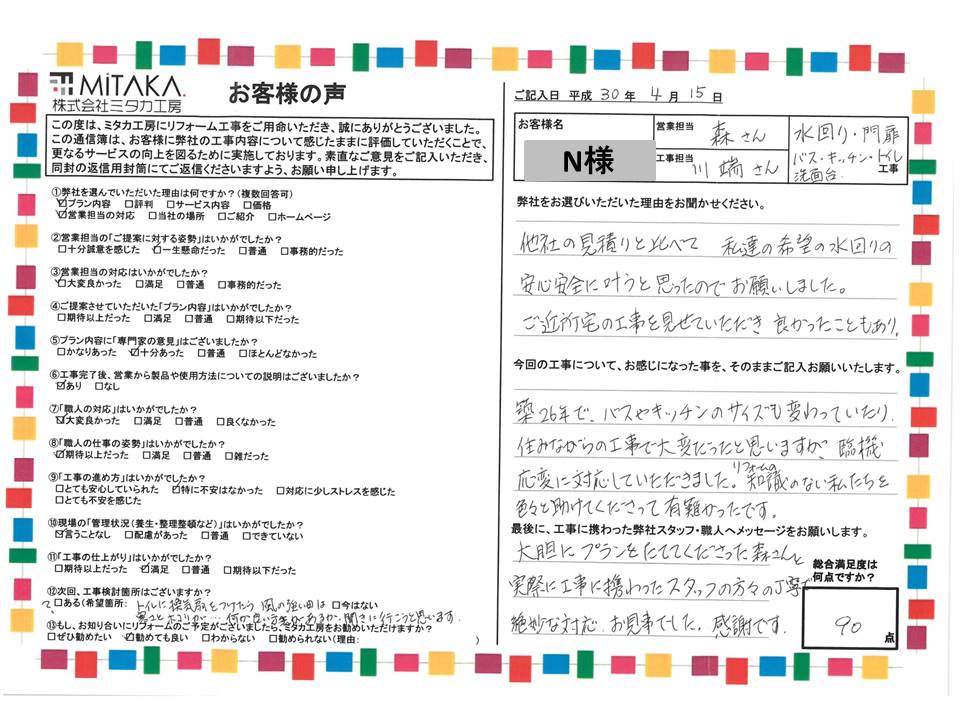 MiTAKA.
株式会社ミタカ工房
お客様の声
この度は、ミタカ工房にリフォーム工事をご用命いただき、誠にありがとうございました。
この通信簿は、お客様に弊社の工事内容について感じたままに評価していただくことで、
更なるサービスの向上を図るために実施しております。素直なご意見をご記入いただき、
同封の返信用封筒にてご返信くださいますよう、お願い申し上げます。
①弊社を選んでいただいた理由は何ですか?(複数回答可)
☑プラン内容 □評判 □サービス内容 □価格
☑営業担当の対応 □当社の場所 □ご紹介 □ホームページ
②営業担当の「ご提案に対する姿勢」はいかがでしたか?
□十分誠意を感じた ☑一生懸命だった □普通 □事務的だった
③営業担当の対応はいかがでしたか?
☑大変良かった □満足 □普通 □事務的だった
④ご提案させていただいた「プラン内容」はいかがでしたか?
□期待以上だった □満足 □普通 □期待以下だった
⑤プラン内容に「専門家の意見」はございましたか?
□かなりあった ☑十分あった □普通 □ほとんどなかった
⑥工事完了後、営業から製品や使用方法についての説明はございましたか?
☑あり □なし
⑦「職人の対応」はいかがでしたか?
☑大変良かった □満足 □普通 □良くなかった
⑧「職人の仕事の姿勢」はいかがでしたか?
☑期待以上だった □満足 □普通 □雑だった
⑨「工事の進め方」はいかがでしたか?
□とても安心していられた ☑特に不安はなかった □対応に少しストレスを感じた
□とても不安を感じた
⑩現場の「管理状況(養生・整理整頓など)」はいかがでしたか?
☑言うことなし □配慮があった □普通 □できていない
⑪「工事の仕上がり」はいかがでしたか?
□期待以上だった ☑満足 □普通 □期待以下だった
⑫次回、工事検討箇所はございますか?
□ある(希望箇所: トイレに換気扇をつけたら 風の強い日は □今はない
何か良い方法があるか、聞きに行こうと思います.
⑬もし、お知り合いにリフォームのご予定がございましたら、ミタカ工房をお勧めいただけますか?
□ぜひ勧めたい ☑勧めても良い □わからない □勧められない(理由: )
ご記入日 平成 30 年 4 月 15 日
お客様名
N様
営業担当 森さん
工事担当 川端さん
水回り・門扉
バス・キッチン・トイレ
洗面台. 工事
弊社をお選びいただいた理由をお聞かせください。
他社の見積りと比べて 私達の希望の水回りの
安心安全に叶うと思ったのでお願いしました。
ご近所宅の工事を見せていただき 良かったこともあり.
今回の工事について、お感じになった事を、そのままご記入お願いいたします。
築26年で、バスやキッチンのサイズも変わっていたり.
住みながらの工事で大変だったと思いますが、臨機
応変に対応していただきました。リフォームの知識のない私たちを
色々と助けてくださって有難かったです。
最後に、工事に携わった弊社スタッフ・職人へメッセージをお願いします。
大胆にプランをたててくださった森さんと
実際に工事に携わったスタッフの方々の丁寧で
絶妙な対応、お見事でした。感謝です.
総合満足度は
何点ですか?
90 点